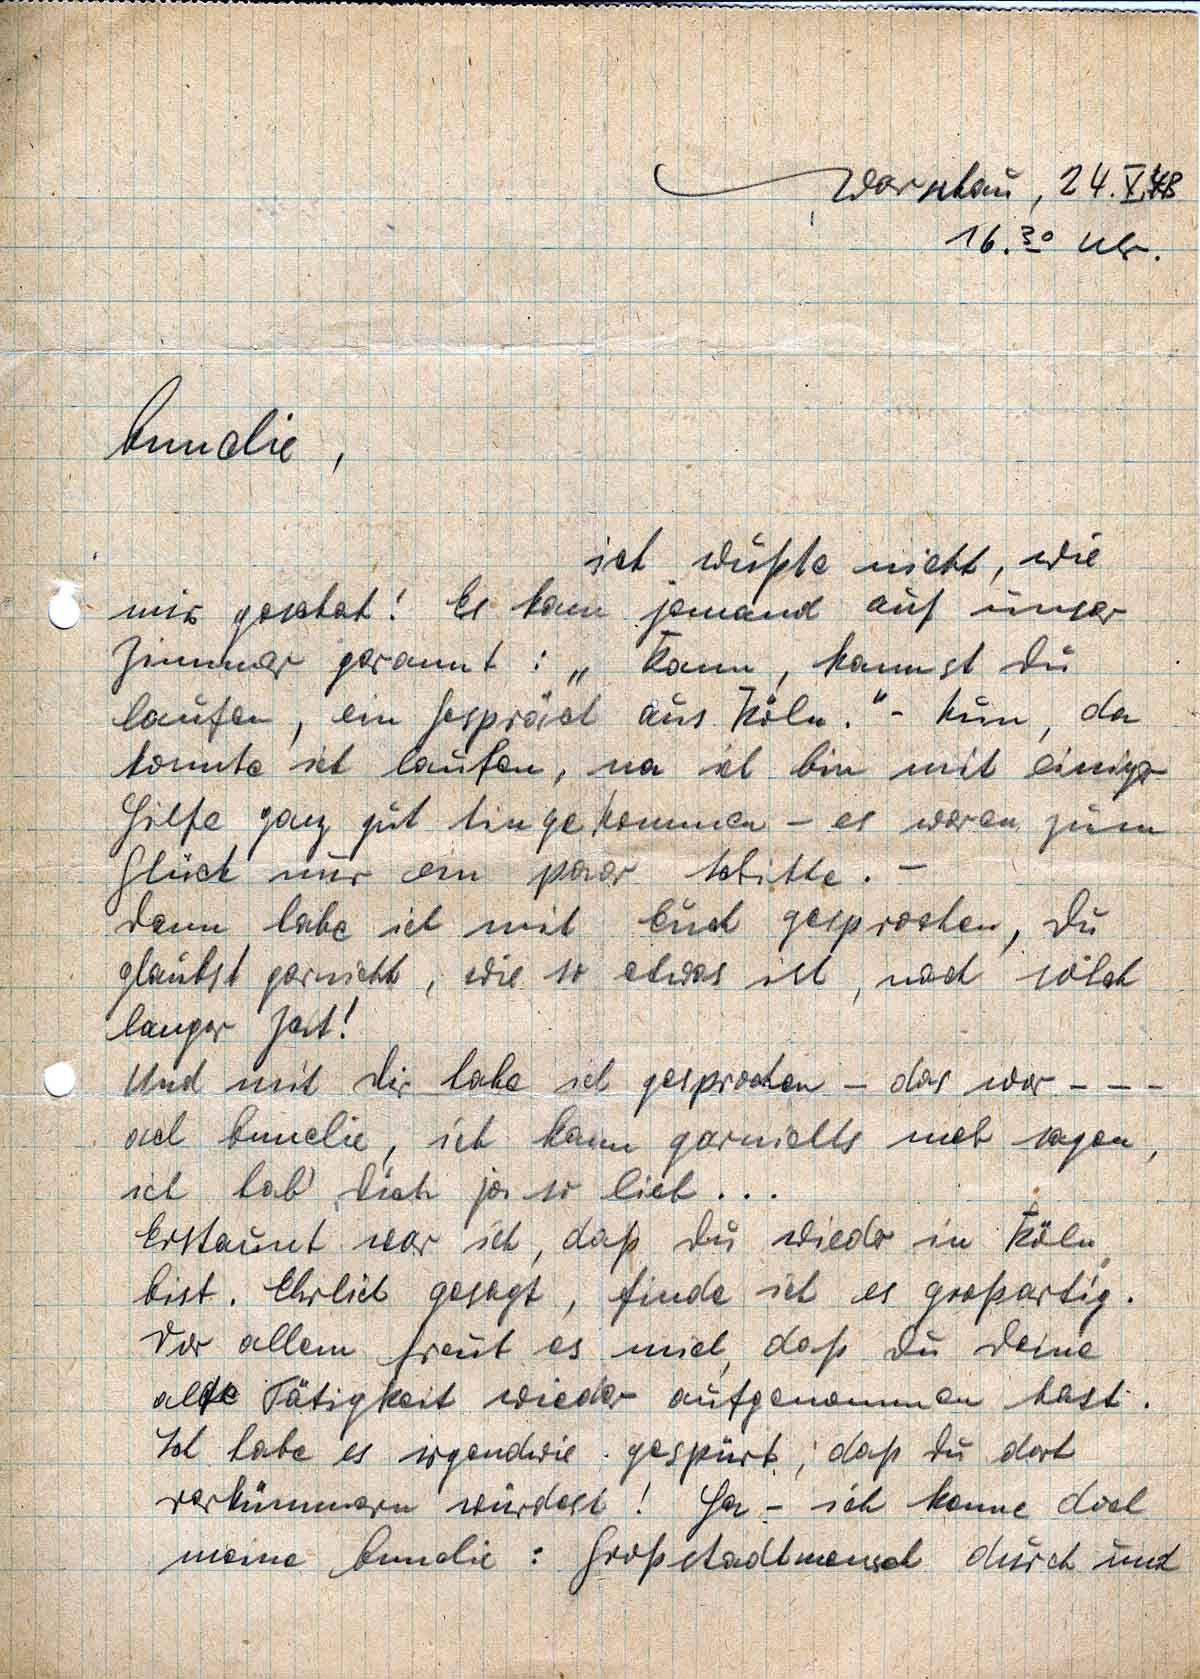 Warschau, 24.V.43
16.30 Uhr.
Annelie,
ich wußte nicht, wie
mir geschah! Es kam jemand auf unser
Zimmer gerannt: „Kamm, kannst Du
laufen, ein Gespräch aus Köln." – Nun, da
konnte ich laufen, na ich bin mit einiger
Hilfe ganz gut hingekommen – es waren zum
Glück nur ein paar Schritte. –
Dann habe ich mit Euch gesprochen, Du
glaubst garnicht, wie so etwas ist, nach solch
langer Zeit!
Und mit Dir habe ich gesprochen – das war – – –
ach Annelie, ich kann garnichts mehr sagen,
ich hab' Dich ja so lieb...
Erstaunt war ich, daß Du wieder in Köln
bist. Ehrlich gesagt, finde ich es großartig.
Vor allem freut es mich, daß Du Deine
alte Tätigkeit wieder aufgenommen hast.
Ich habe es irgendwie gespürt, daß Du dort
verkümmern würdest! Ja – ich kenne doch
meine Annelie: Großstadtmensch durch und